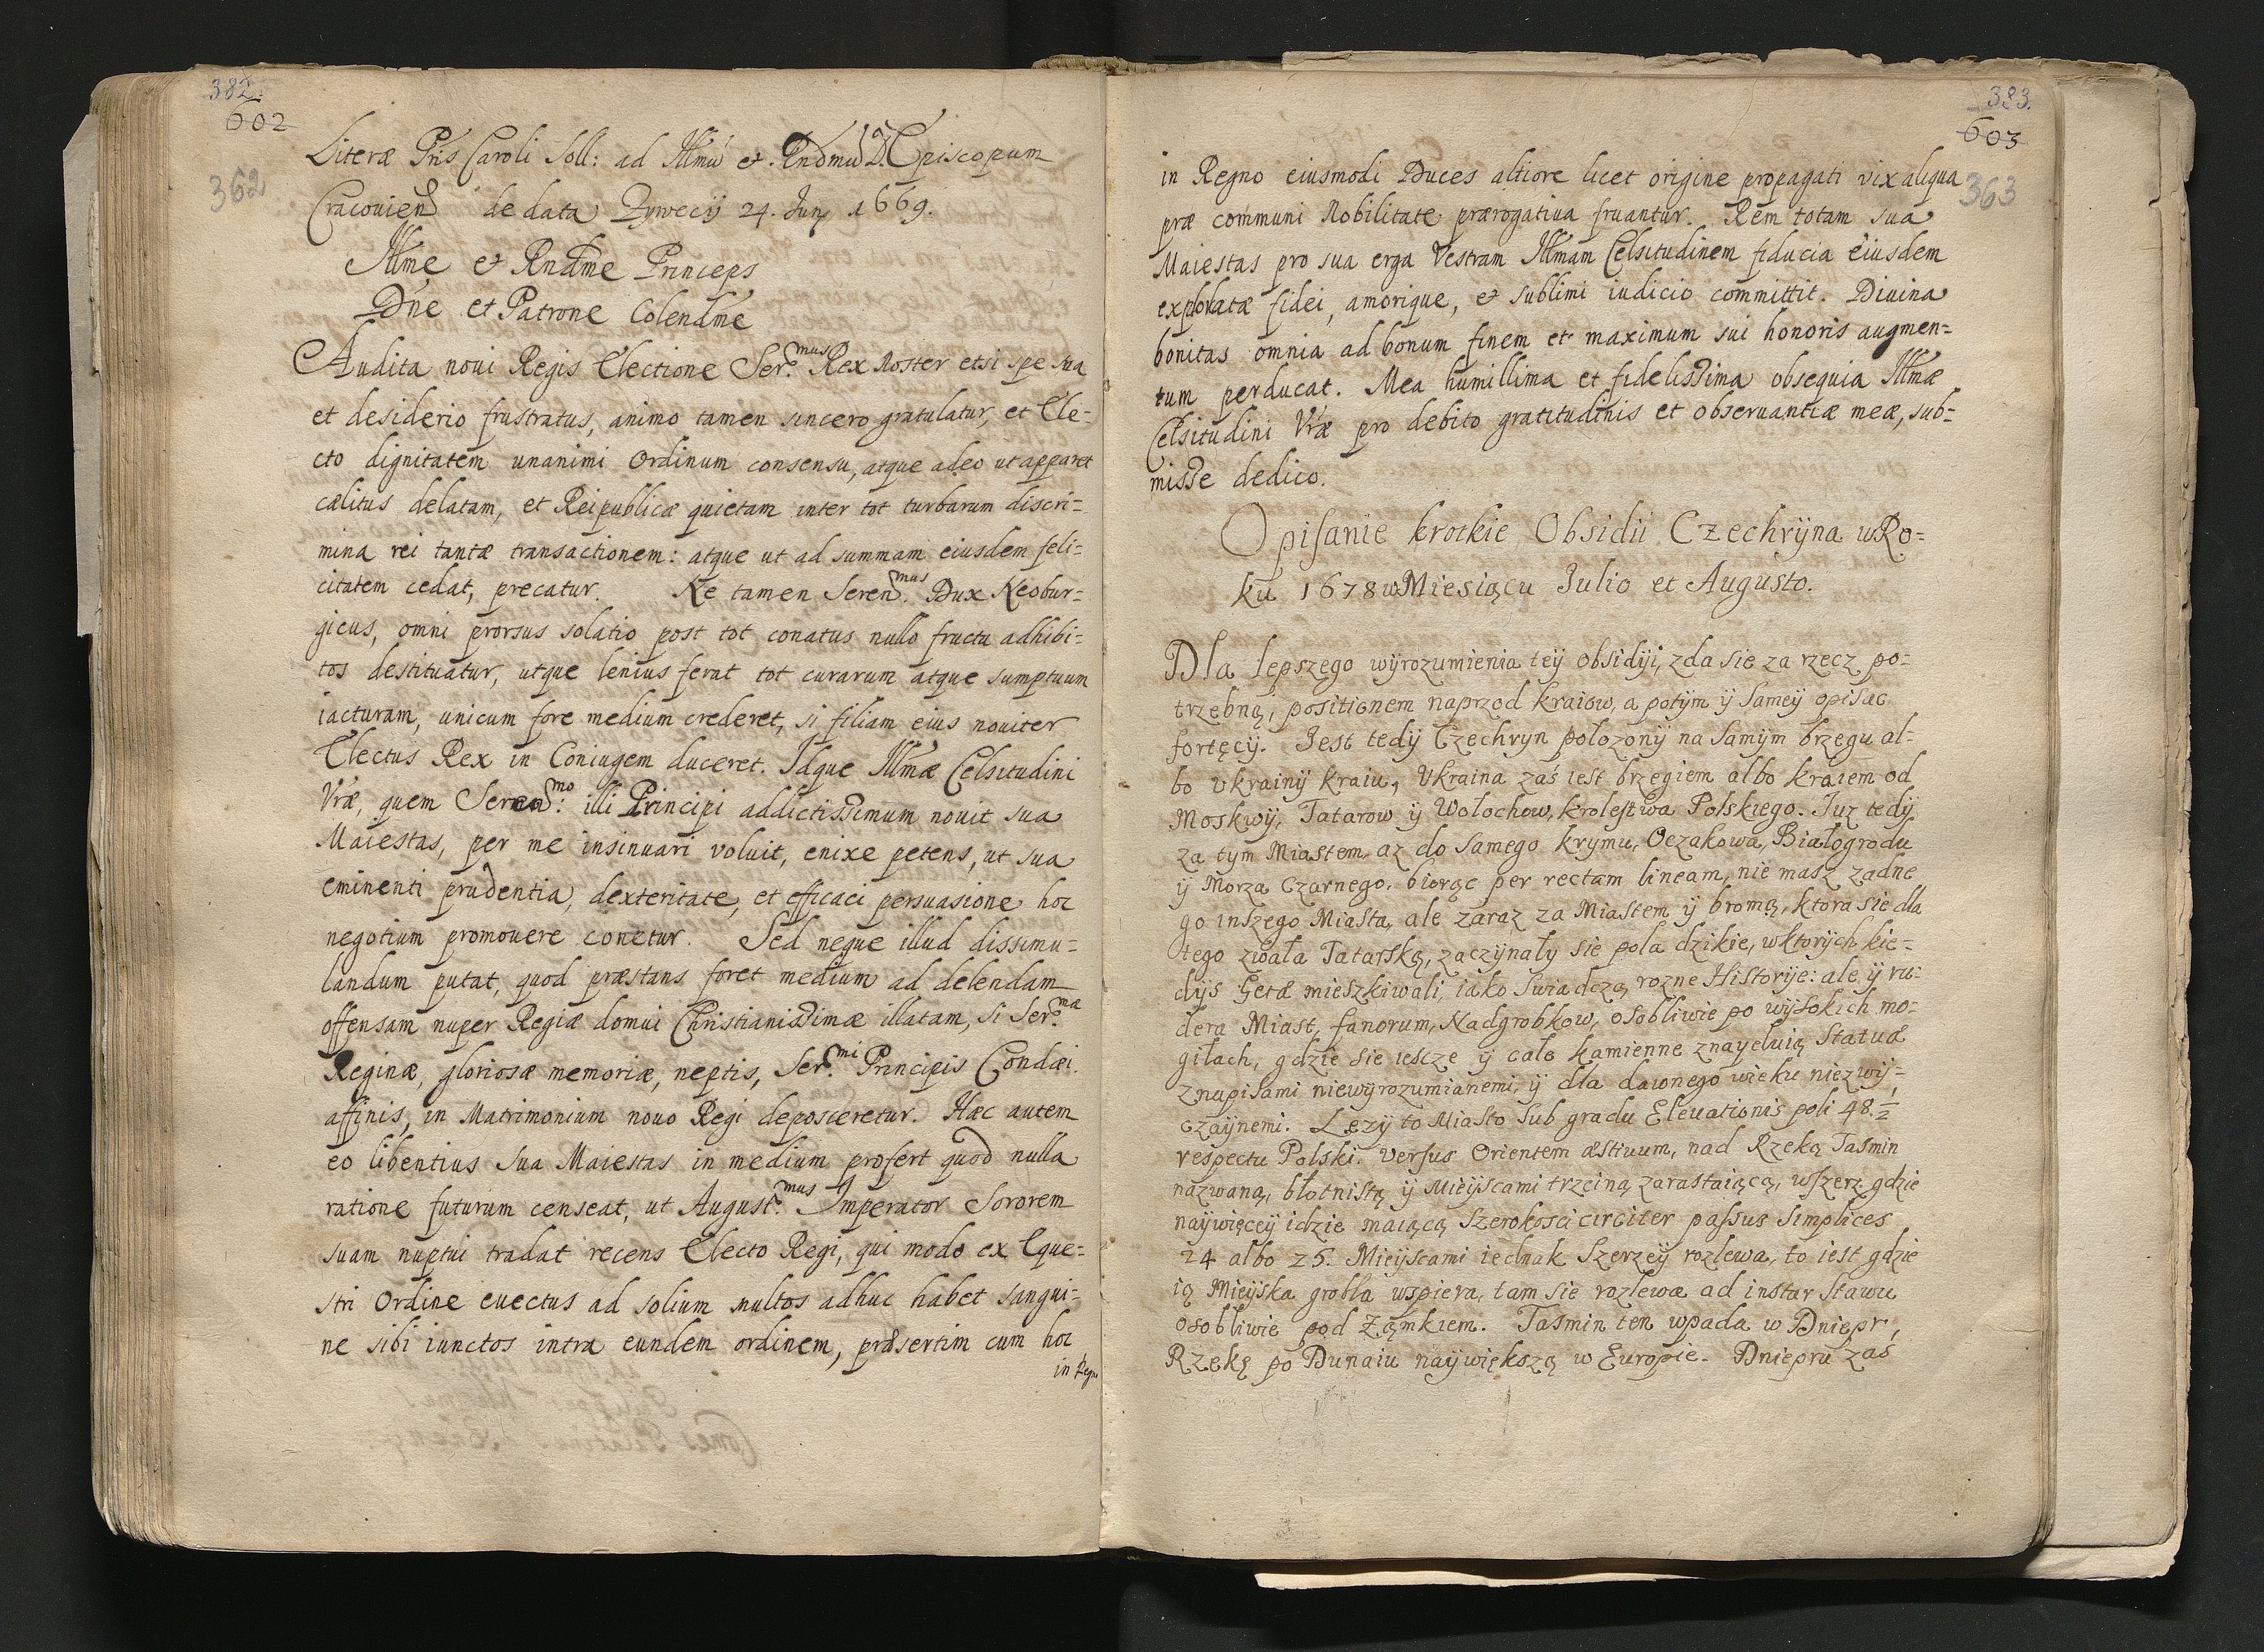 382.
602
362
Literæ Pris Caroli Soll: ad Illmu et Rndmu D. Episcopum
Cracouien de data Zywecij 24. Junij 1669.
Illme et Rndme Princeps
Dne et Patrone Colendme
Audita noui Regis Electione Ser.mus Rex Noster etsi spe sua
et desiderio frustratus, animo tamen sincero gratulatur, et Ele-
cto dignitatem unanimi Ordinum consensu, atque adeo ut apparet
cælitus delatam, et Reipublicæ quietam inter tot turbarum discri-
mina rei tantæ transactionem: atque ut ad summam eiusdem feli-
citatem cedat, precatur. Ne tamen Seren.mus Dux Neobur-
gicus, omni prorsus solatio post tot conatus nullo fructu adhibi-
tos destituatur, utque lenius ferat tot curarum atque sumptuum
iacturam, unicum fore medium crederet, si filiam eius nouiter
Electus Rex in Coniugem duceret. Idque Illmæ Celsitudini
Vræ, quem Seren.mo: illi Principi addictissimum nouit sua
Maiestas, per me insinuari voluit, enixe petens, ut sua
eminenti prudentia, dexteritate, et efficaci persuasione hoc
negotium promouere conetur. Sed neque illud dissimu-
landum putat, quod præstans foret medium ad delendam
offensam nuper Regiæ domui Christianissimæ illatam, si Ser.ma
Reginæ, gloriosæ memoriæ, neptis, Ser.mi Principis Condæi
affinis, in Matrimonium nouo Regi deposceretur. Hæc autem
eo libentius sua Maiestas in medium profert quod nulla
ratione futurum censeat, ut August.mus Imperator Sororem
suam nuptui tradat recens Electo Regi, qui modo ex Eque-
stri Ordine euectus ad solium multos adhuc habet sangui-
ne sibi iunctos intra eundem ordinem, præsertim cum hoc
in Regn
383.
603
363
in Regno eiusmodi Duces altiore licet origine propagati vix aliqua
præ communi Nobilitate prærogatiua fruantur. Rem totam sua
Maiestas pro sua erga Vestram Illmam Celsitudinem fiducia eiusdem
exploratæ fidei, amorique, et sublimi iudicio committit. Diuina
bonitas omnia ad bonum finem et maximum sui honoris augmen-
tum perducat. Mea humillima et fidelissima obsequia Illmæ
Celsitudini Vræ pro debito gratitudinis et obseruantiæ meæ, sub-
misse dedico.
Opisanie krotkie Obsidii Czechryna w Ro-
ku 1678 w Miesiącu Julio et Augusto.
Dla lepszego wyrozumienia teÿ obsidÿi, zda sie za rzecz po-
trzebną, positionem naprzod kraiow, a potÿm ÿ Sameÿ opisac
fortęcÿ. Jest tedÿ Czechryn położonÿ na Samÿm brzegu al-
bo vkrainÿ kraiu, Vkraina zaś iest brzegiem albo kraiem od
Moskwÿ, Tatarow ÿ Wołochow, krolestwa Polskiego. Juz tedÿ
za tym Miastem az do Samego krymu, Oczakowa, Białogrodu
ÿ Morza Czarnego, biorąc per rectam lineam, nie masz zadne
go inszego Miasta, ale zaraz za Miastem ÿ bromą, ktora sie dla
tego zwała Tatarską, zaczÿnałÿ sie pola dzikie, w ktorÿch kie-
dÿs Getæ mieszkiwali, iako swiadczą rozne Historÿe: ale ÿ ru-
dera Miast, fanorum, Nadgrobkow, osobliwie po wÿsokich mo-
giłach, gdzie sie ieszcze ÿ całe kamienne znayduią Statuæ
z napisami niewÿrozumianemi, ÿ dla dawnego wieku niezwÿ-
czaÿnemi. Lezÿ to Miasto Sub gradu Eleuationis poli 48. 1/2
respectu Polski. versus Orientem æstiuum, nad Rzeką Tasmin
nazwaną, błotnistą ÿ Mieÿscami trzciną zarastaiącą, wszerz gdzie
naÿwięceÿ idzie maiącą Szerokosci circiter passus Simplices
24 albo 25. Mieÿscami iednak Szerzeÿ rozlewa, to iest gdzie
ią Mieÿska grobla wspiera, tam sie rozlewa ad instar Stawu
osobliwie pod Ząmkiem. Tasmin ten wpada w Dniepr,
Rzekę po Dunaiu naÿwiększą w Europie. Dniepru zaś